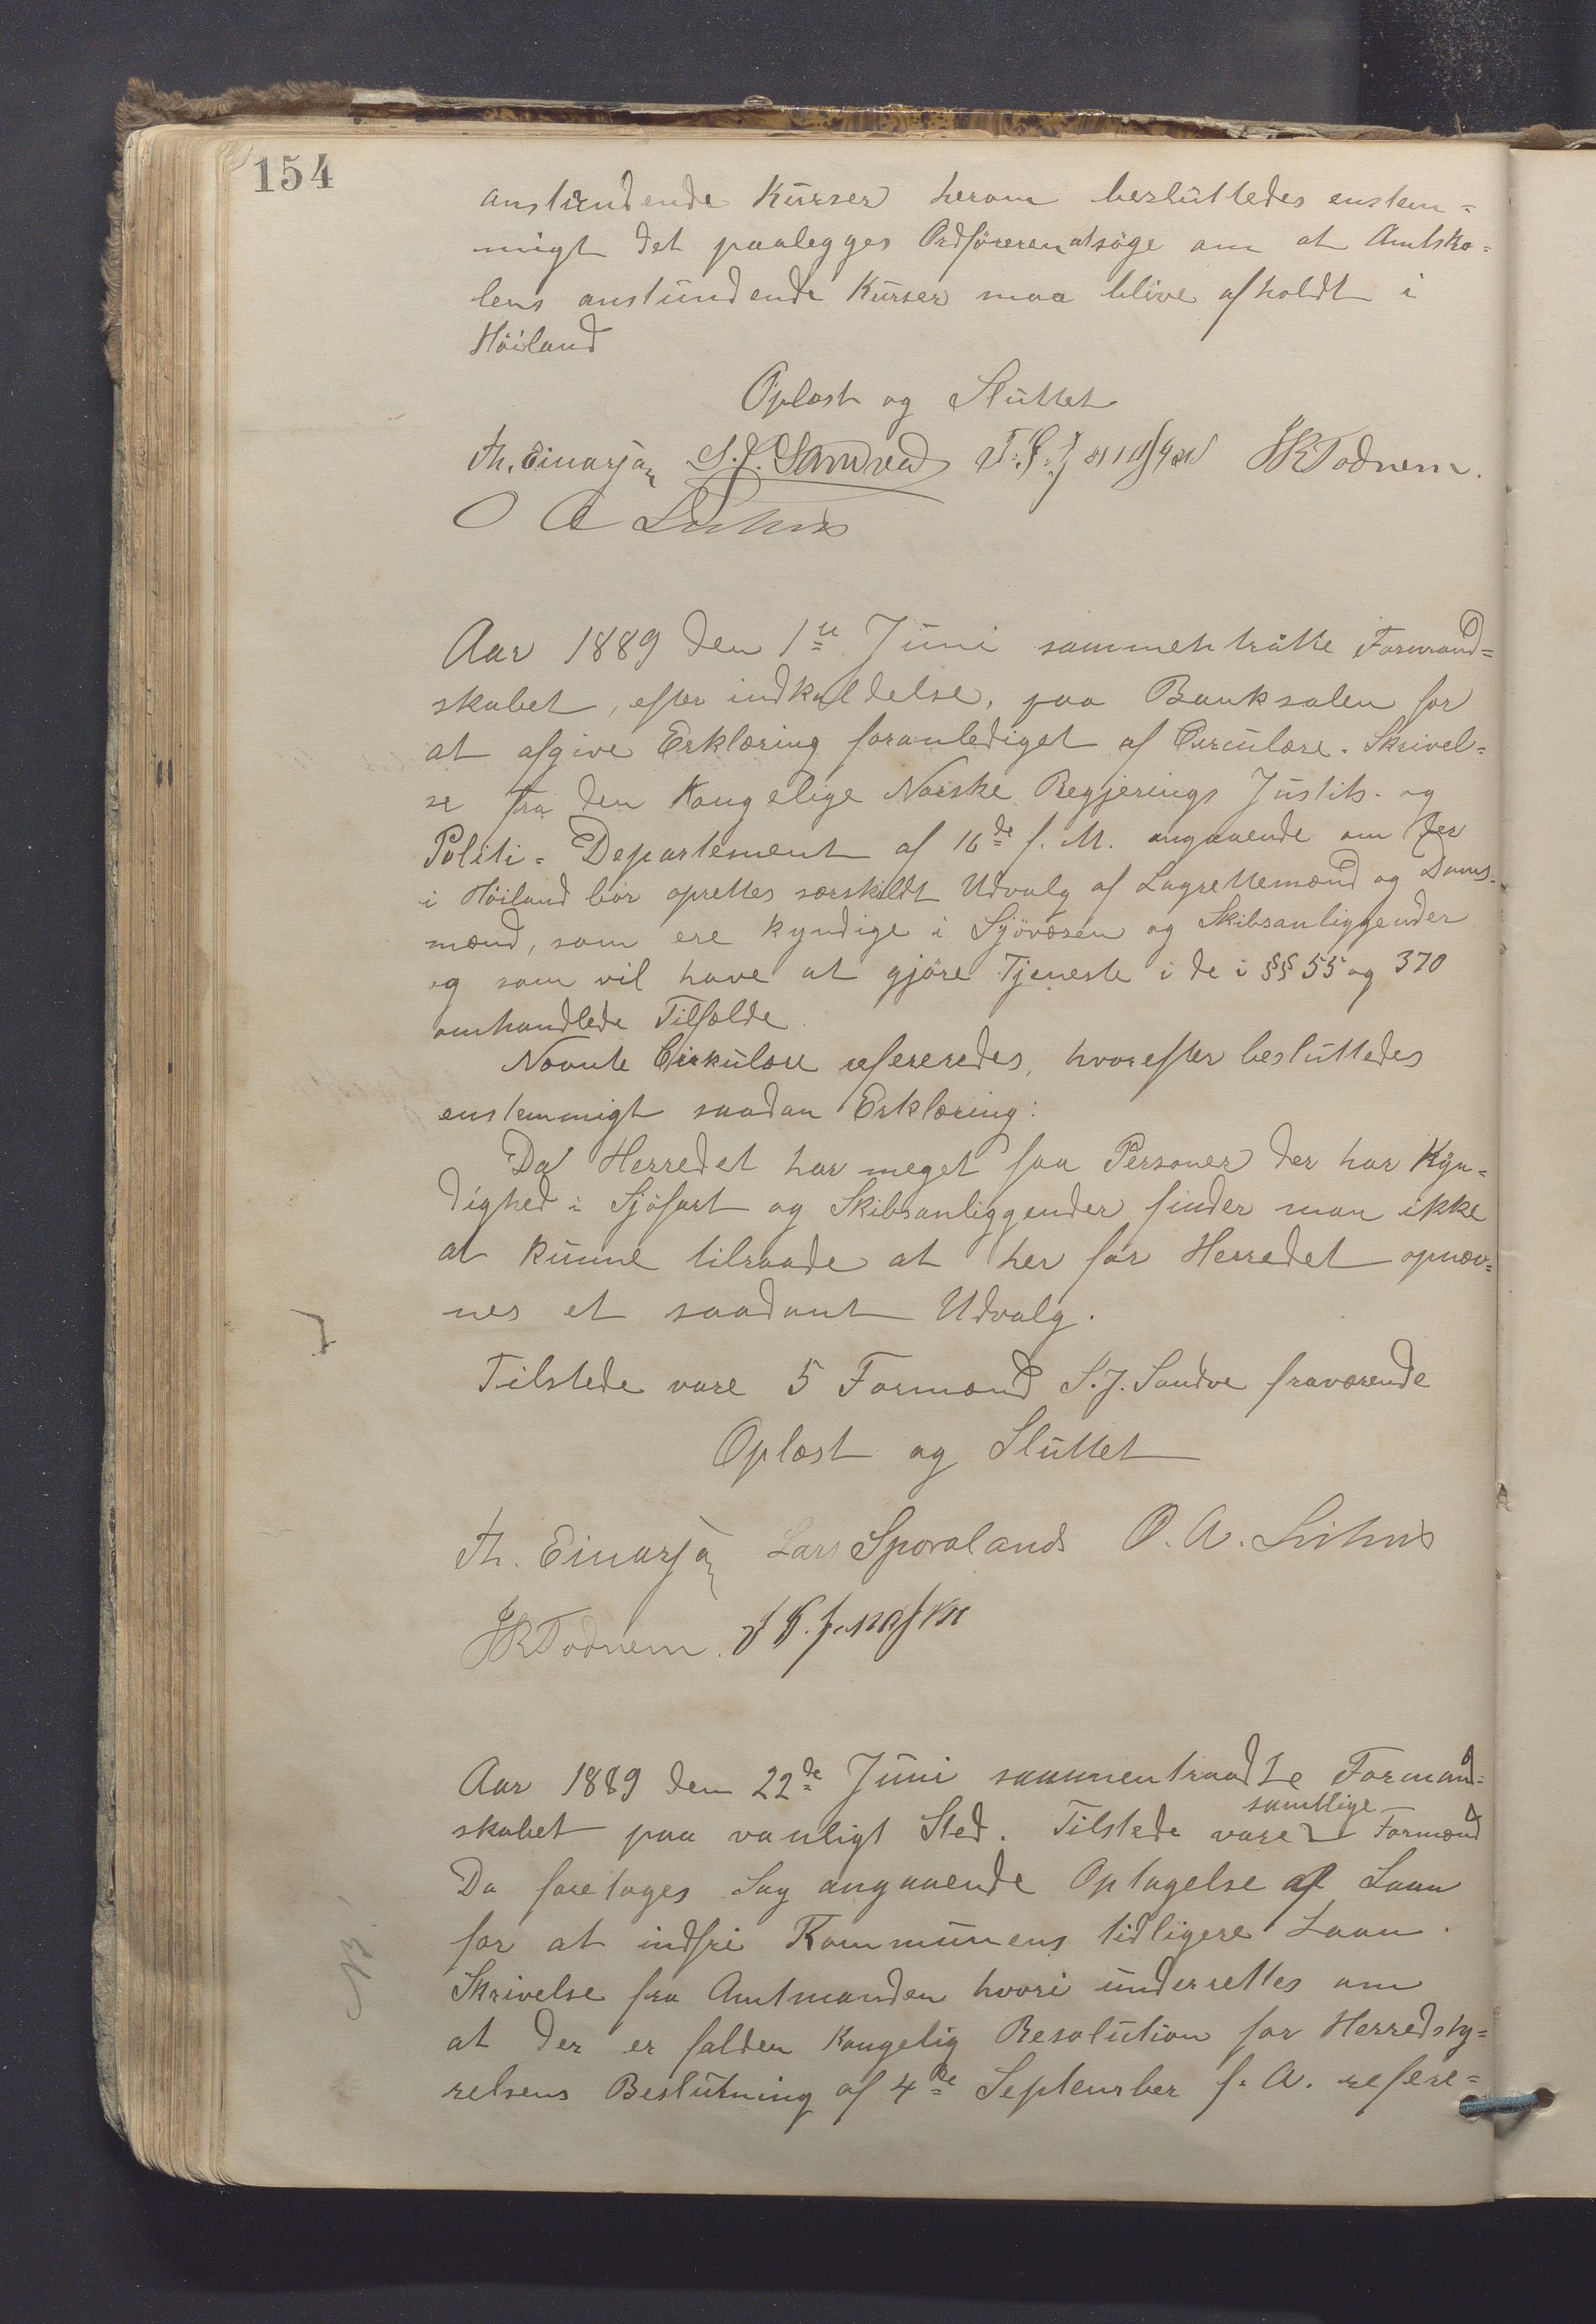 154
anstundende Kurser herom besluttedes enstem=
migt det paalegges Ordföreren at söge om at Amtsko=
lens anstundende Kurser maa blive afholdt i
Höiland
Oplæst og Sluttet
Th. Einarsen S. J. Sandve JKTodnem.
O A Lihus
Aar 1889 den 1ste Juni sammentrådte Formand=
skabet, efter indkaldelse, paa Banksalen for
at afgive Erklæring foranlediget af Circulære-Skrivel=
se fra den Kongelige Norske Regjerings Justits- og
Politi-Departement af 16de f. M. angaaende om der
i Höiland bör oprettes særskildt Udvalg af Lagrettemænd og Doms=
mænd, som ere kyndige i Sjövæsen og Skibsanliggender
og som vil have at gjöre Tjeneste i de i §§ 55 og 370
omhandlede Tilfælde.
Nævnte Cirkulære refereredes, hvorefter besluttedes
enstemmigt saadan Erklæring:
Da Herredet har meget faa Personer der har Kyn=
dighed i Sjöfart og Skibsanliggender finder man ikke
at kunne tilraade at her for Herredet opnæv=
nes et saadant Udvalg.
Tilstede vare 5 Formænd S. J. Sandve fraværende
Oplæst og Sluttet
Th. Einarsen Lars Sporaland O. A. Lihus
JKTodnem.
Aar 1889 den 22de Juni sammentraadte Formand=
samtlige
skabet paa vanligt Sted. Tilstede vare Formænd
Da foretoges Sag angaaende Optagelse af Laan
for at indfri Kommunens tidligere Laan.
NB.
Skrivelse fra Amtmanden hvori underrettes om
at der er falden Kongelig Resolution for Herredsty=
relsens Beslutning af 4de September f. A. refere=